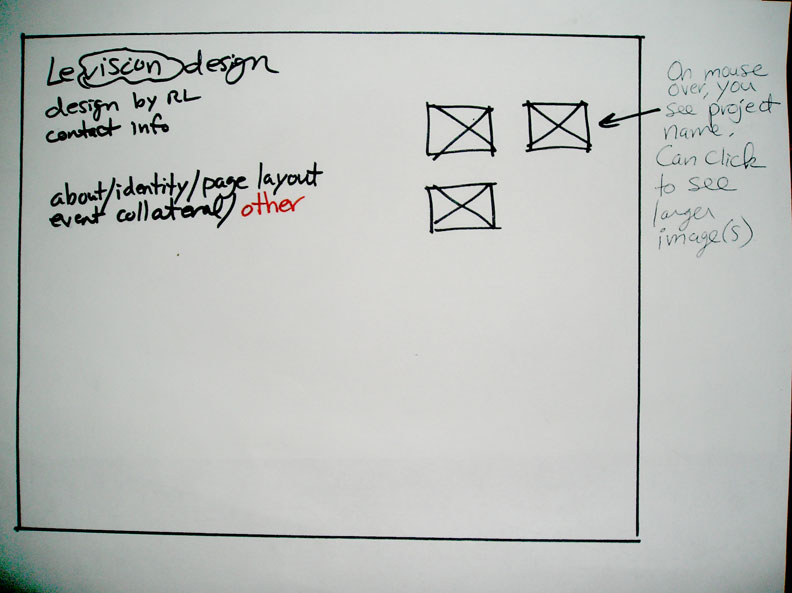 Le vision design
design by RL
contact info
about/identity/page layout
event collateral/other
On mouse
over, you
see project
name.
Can click
to see
larger
image(s)